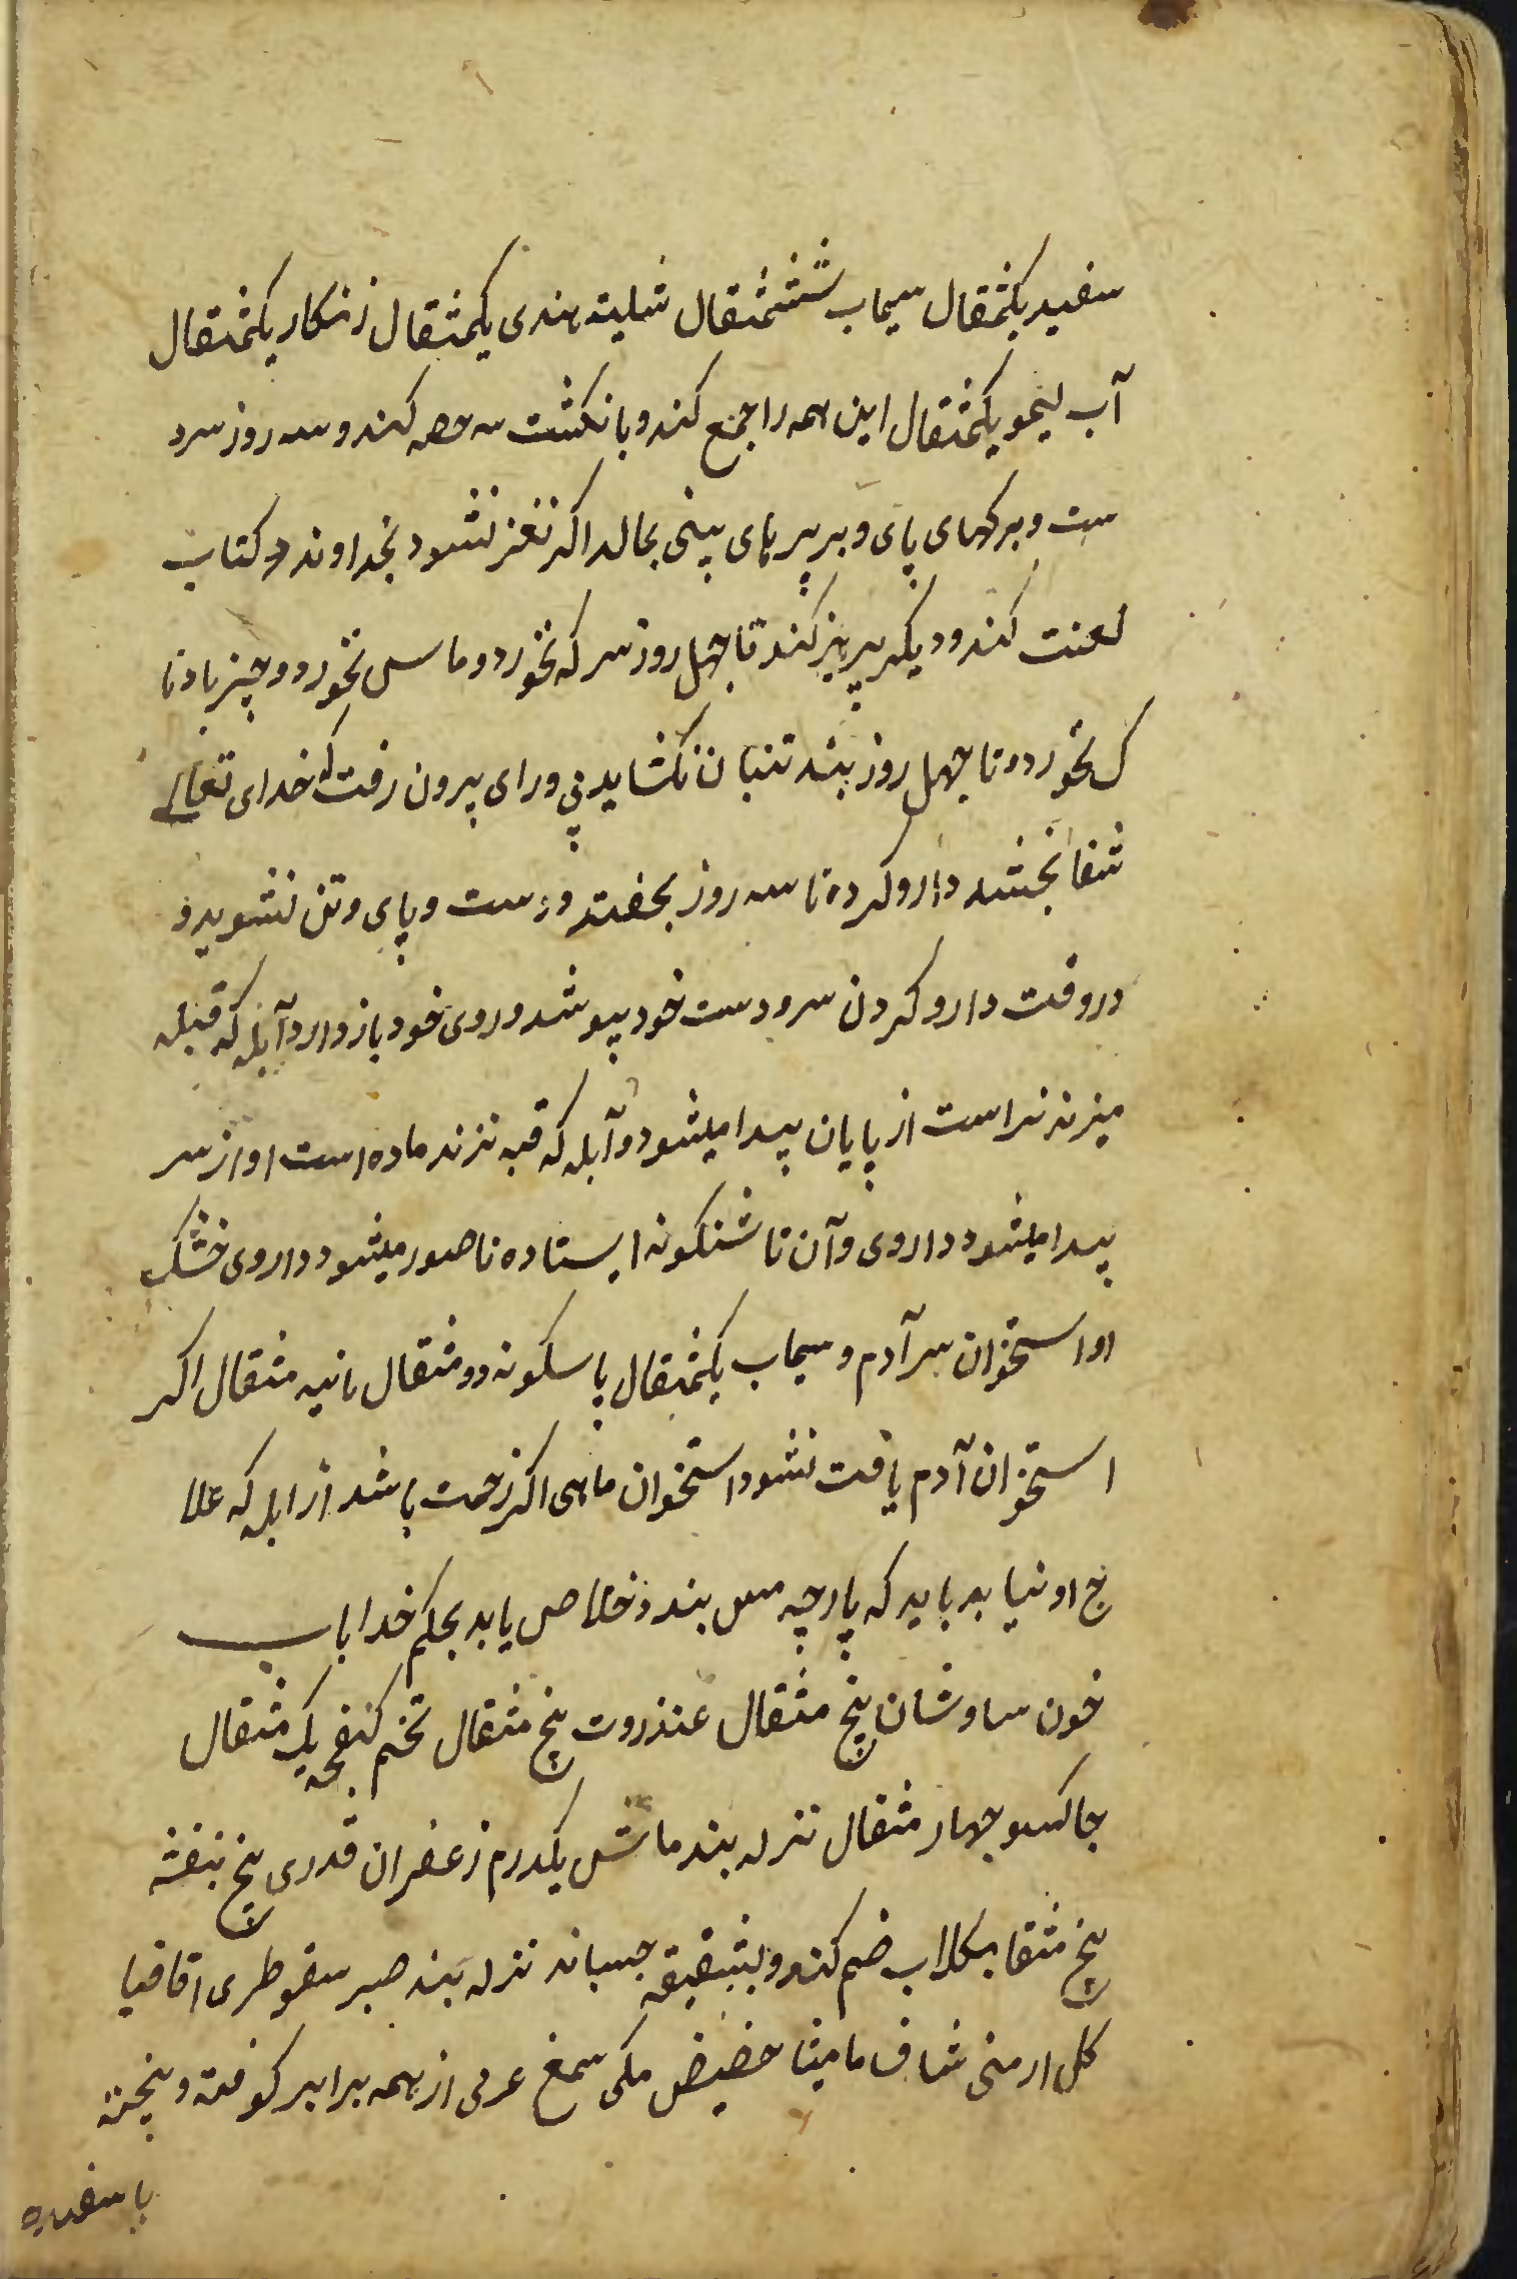 سفید یکمثقال سیماب ششمثقال شلیته هندی یکمثقال زنکار یکمثقال
آب لیمو یکمثقال این همه را جمع کند و بانکشت سه حصه کند و سه روز سر د
ست و برکهای پای و بر پیر پای بینی بمالد اکر نغز نشود بخداوند و کتاب
لعنت کند و دیکر پرهیز کند تا چهل روز سرکه نخورد و ماس نخورد و چیز بادنا
ک نخورد و تا چهل روز بند تنبان نکشاید بی ورای بیرون رفت که خدای تعالی
شفا بخشد دارو کرده تا سه روز بخفتد و دست و پای و تن نشوید و
در وقت دارو کردن سر و دست خود بپوشد و روی خود باز دارد آبله که قبله
میزند نر است از پایان پیدا میشود و آبله که قبه نزند ماده است او از سر
پیدا میشود داروی و آن تا شنکونه ایستاده ناصور میشود داروی خشک
او استخوان سر آدم و سیماب یکمثقال پاسکونه دو مثقال نانیه مثقال اکر
استخوان آدم یافت نشود استخوان ماهی اکر زحمت باشد از ابله که علا
ج او نیابد باید که پارچه مس بندد خلاص یابد بحکم خدا باب
خون ساوشان پنج مثقال عنذروت پنج مثقال تخم کنفچه یک مثقال
چاکسو چهار مثقال نزله بند ماش یکدرم زعفران قدری بیخ بنفشه
پنج مثقا بکلاب ضم کند و بشقیقه چسباند نزله بند صبر سقوطری اقاقیا
کل ارمنی شاف مامیثا حضیض مکی سمغ عربی از همه برابر کوفته و بیخته
با سفیده